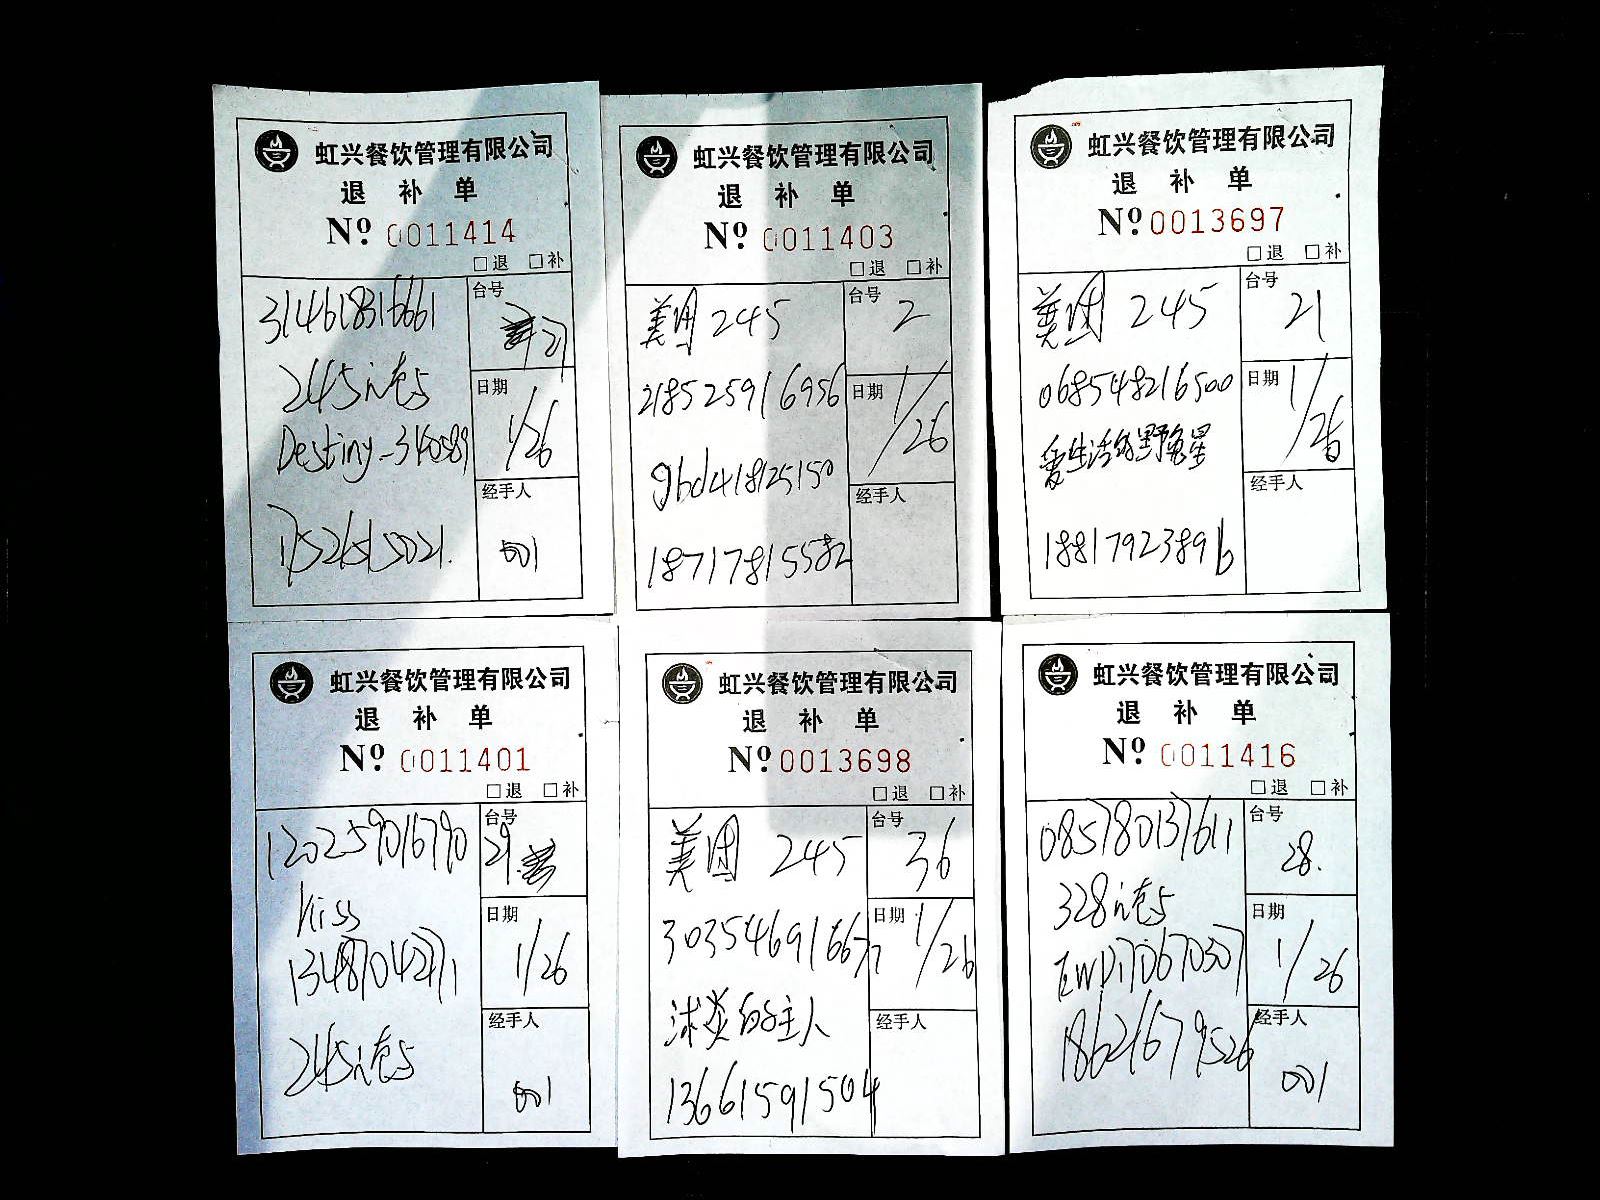 虹兴餐饮管理有限公司
退 补 单
Nº 0011414
□退 □补
314618316661
台号
21
245
日期
1/26
Destiny-340589
经手人
17526515021.
001
虹兴餐饮管理有限公司
退 补 单
Nº 0011403
□退 □补
美团 245
台号
2
218525916956
日期
1/26
gbd418125150
经手人
18717815582
虹兴餐饮管理有限公司
退 补 单
Nº 0013697
□退 □补
美团 245
台号
21
068548216500
日期
1/26
爱生活的野象星
经手人
18817923896
虹兴餐饮管理有限公司
退 补 单
Nº 0011401
□退 □补
120259016790
台号
29.
kiss
日期
1/26
13487042771
经手人
245
001
虹兴餐饮管理有限公司
退 补 单
Nº 0013698
□退 □补
美团 245
台号
36
303546916677
日期
1/26
球炎的主人
经手人
13661591504
虹兴餐饮管理有限公司
退 补 单
Nº 0011416
□退 □补
085780137611
台号
28.
328
日期
1/26
经手人
18621679526
001